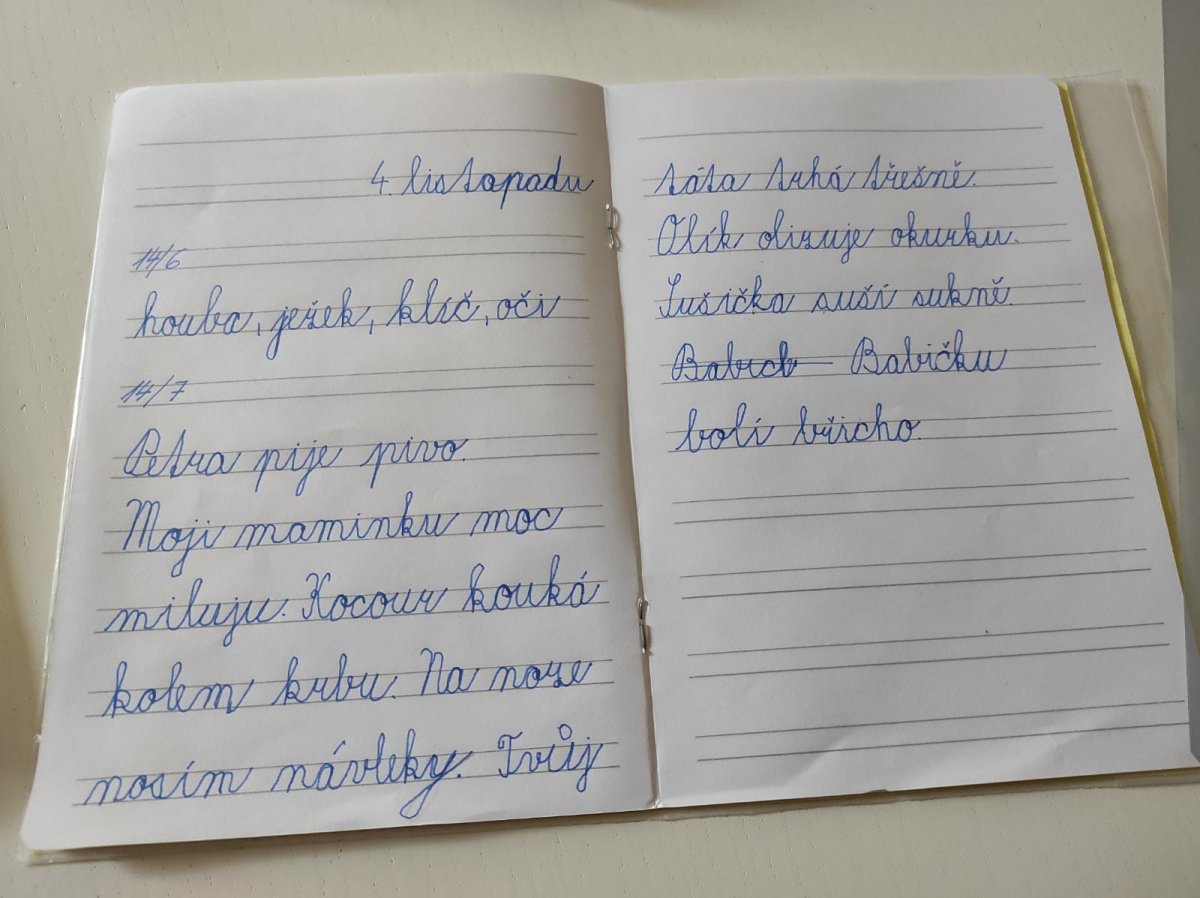 4. listopadu
14/6
houba, ježek, klíč, oči
14/7
Petra pije pivo.
Moji maminku moc
miluju. Kocour kouká
kolem krbu. Na noze
nosím návleky. Tvůj
táta trhá třešně.
Olík olizuje okurku.
Sušička suší sukně.
Babičku
bolí břicho.